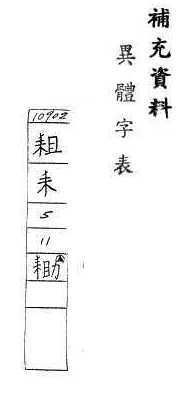 補充資料
異體字表
10902
耝
耒
5
11
耡